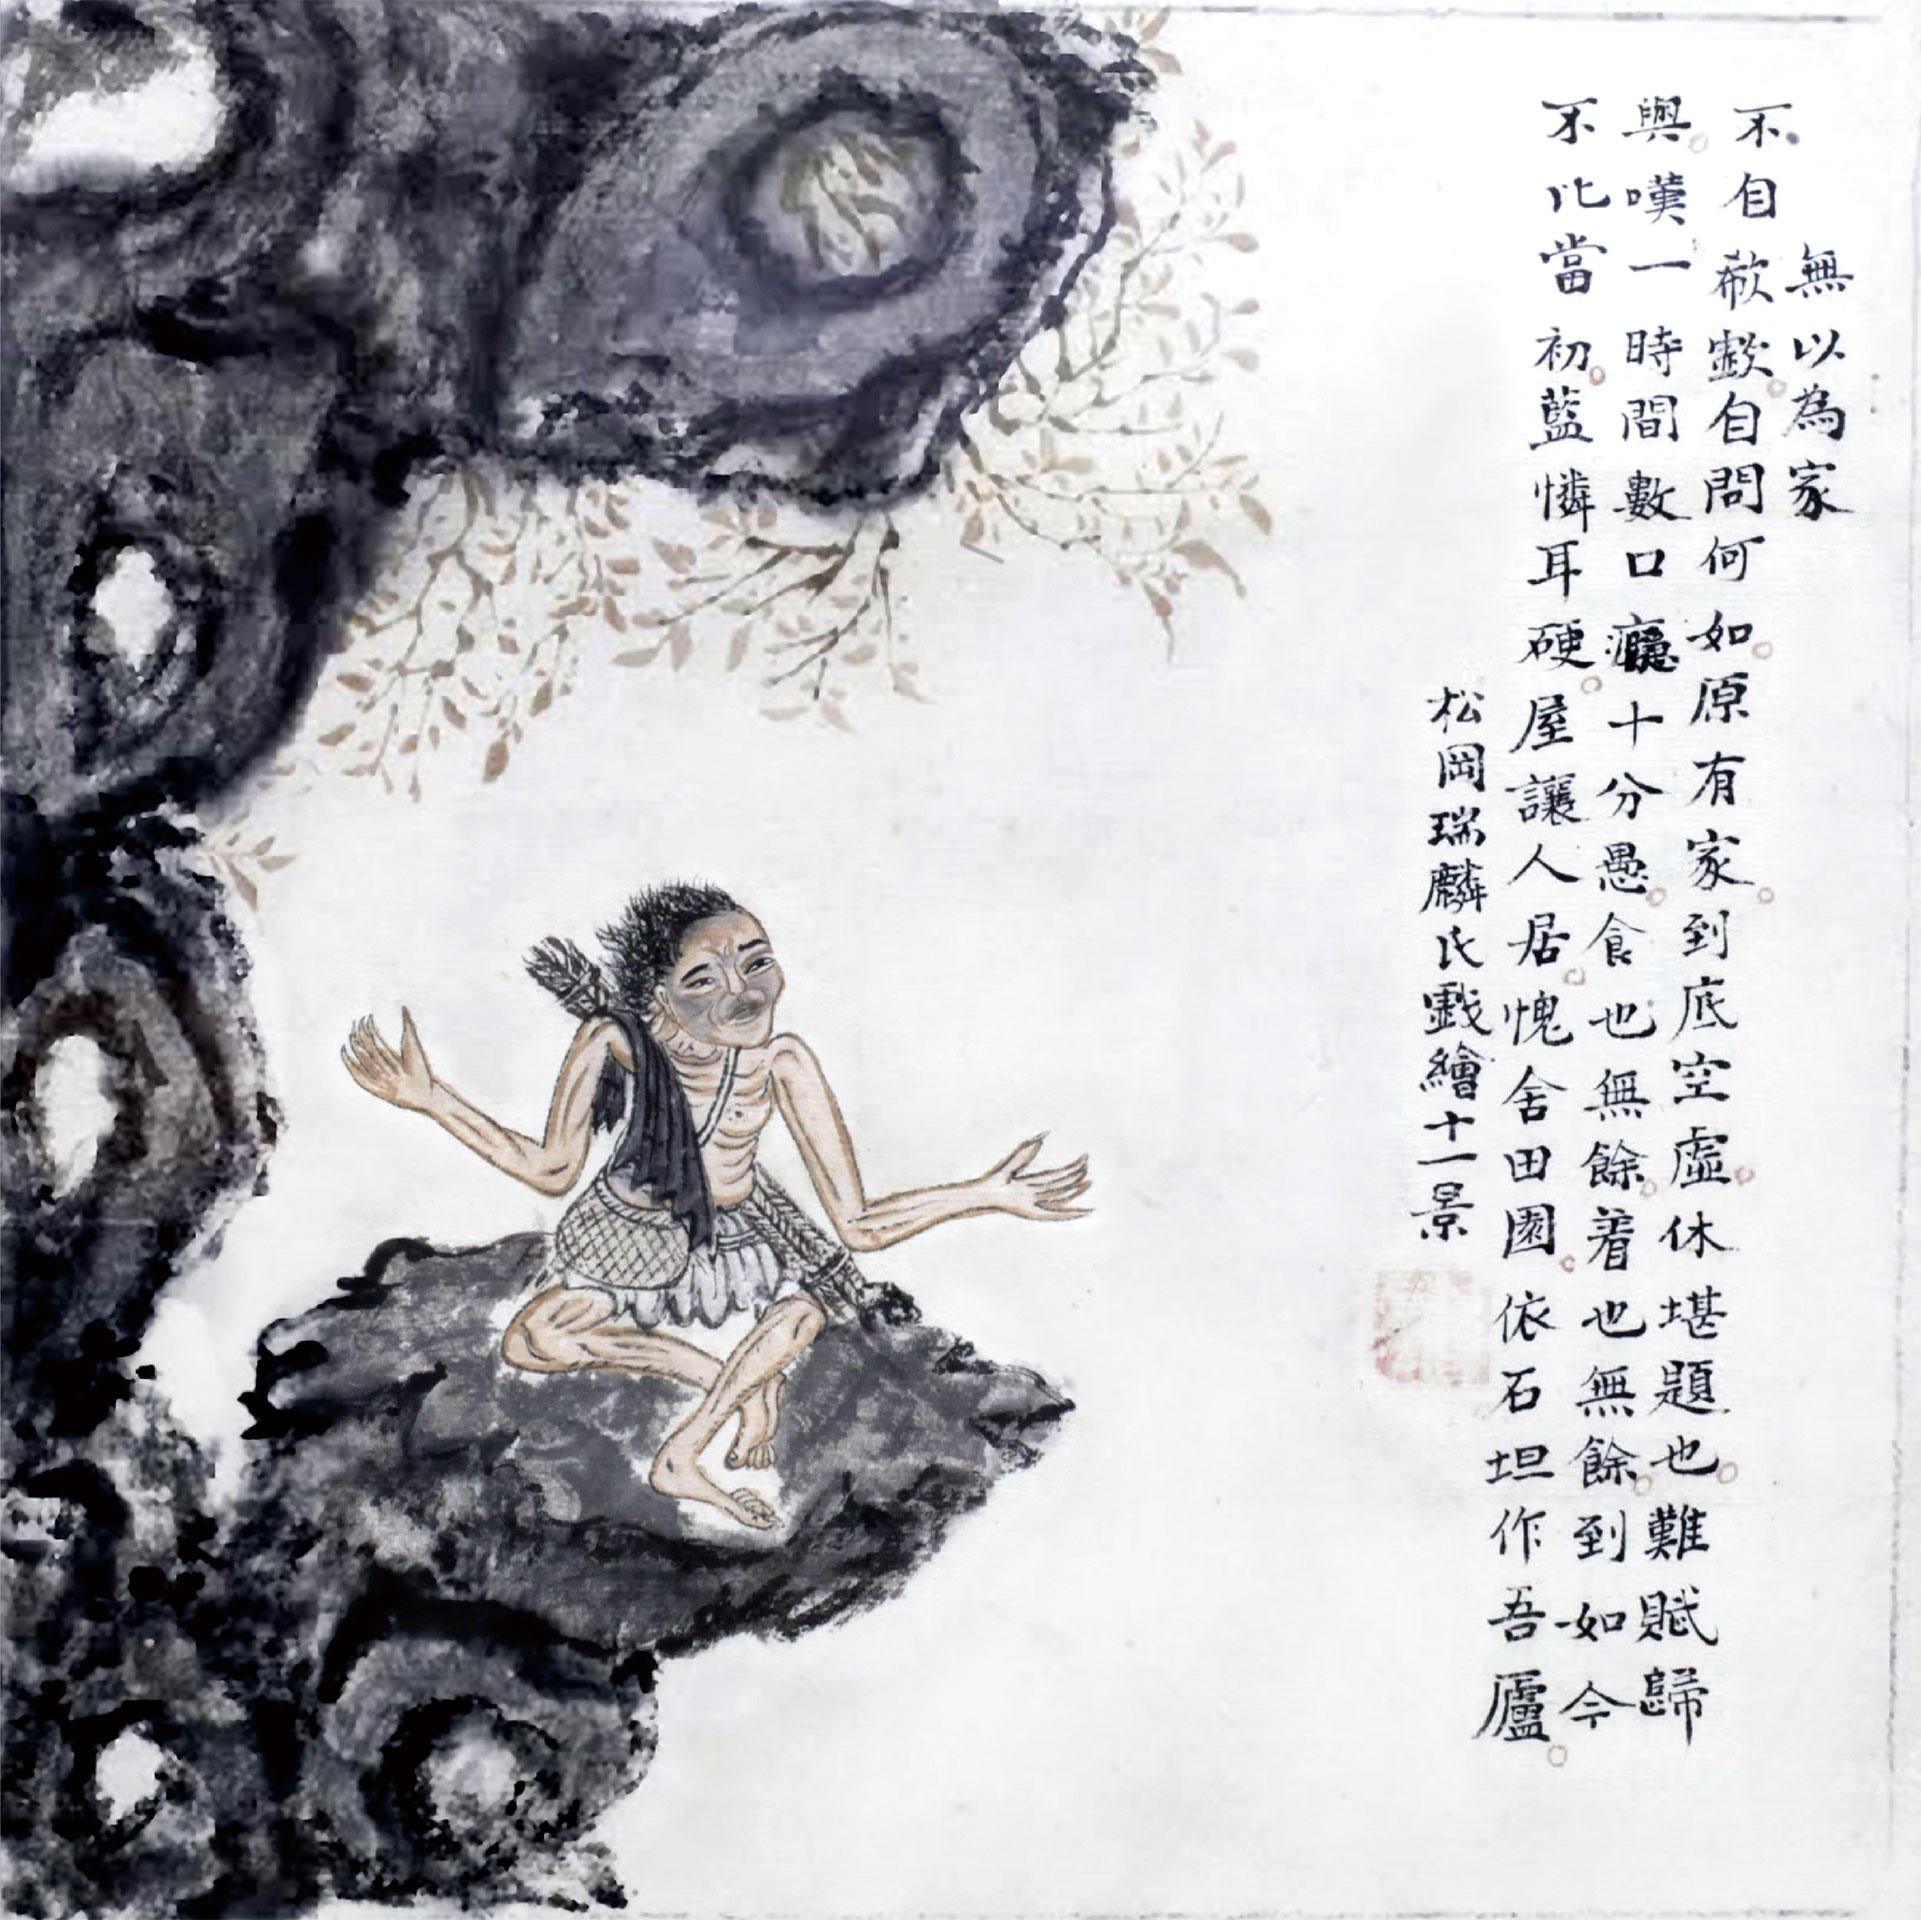 無以為家
不自欷歔。自問何如。原有家。到底空虛。休堪題也。難賦歸
與。嘆一時間數口癮十分愚。食也無餘。着也無餘。到如今
不比當初。藍憐耳硬。屋讓人居。愧舍田園。依石坦作吾廬。
松岡瑞麟氏戲繪十一景